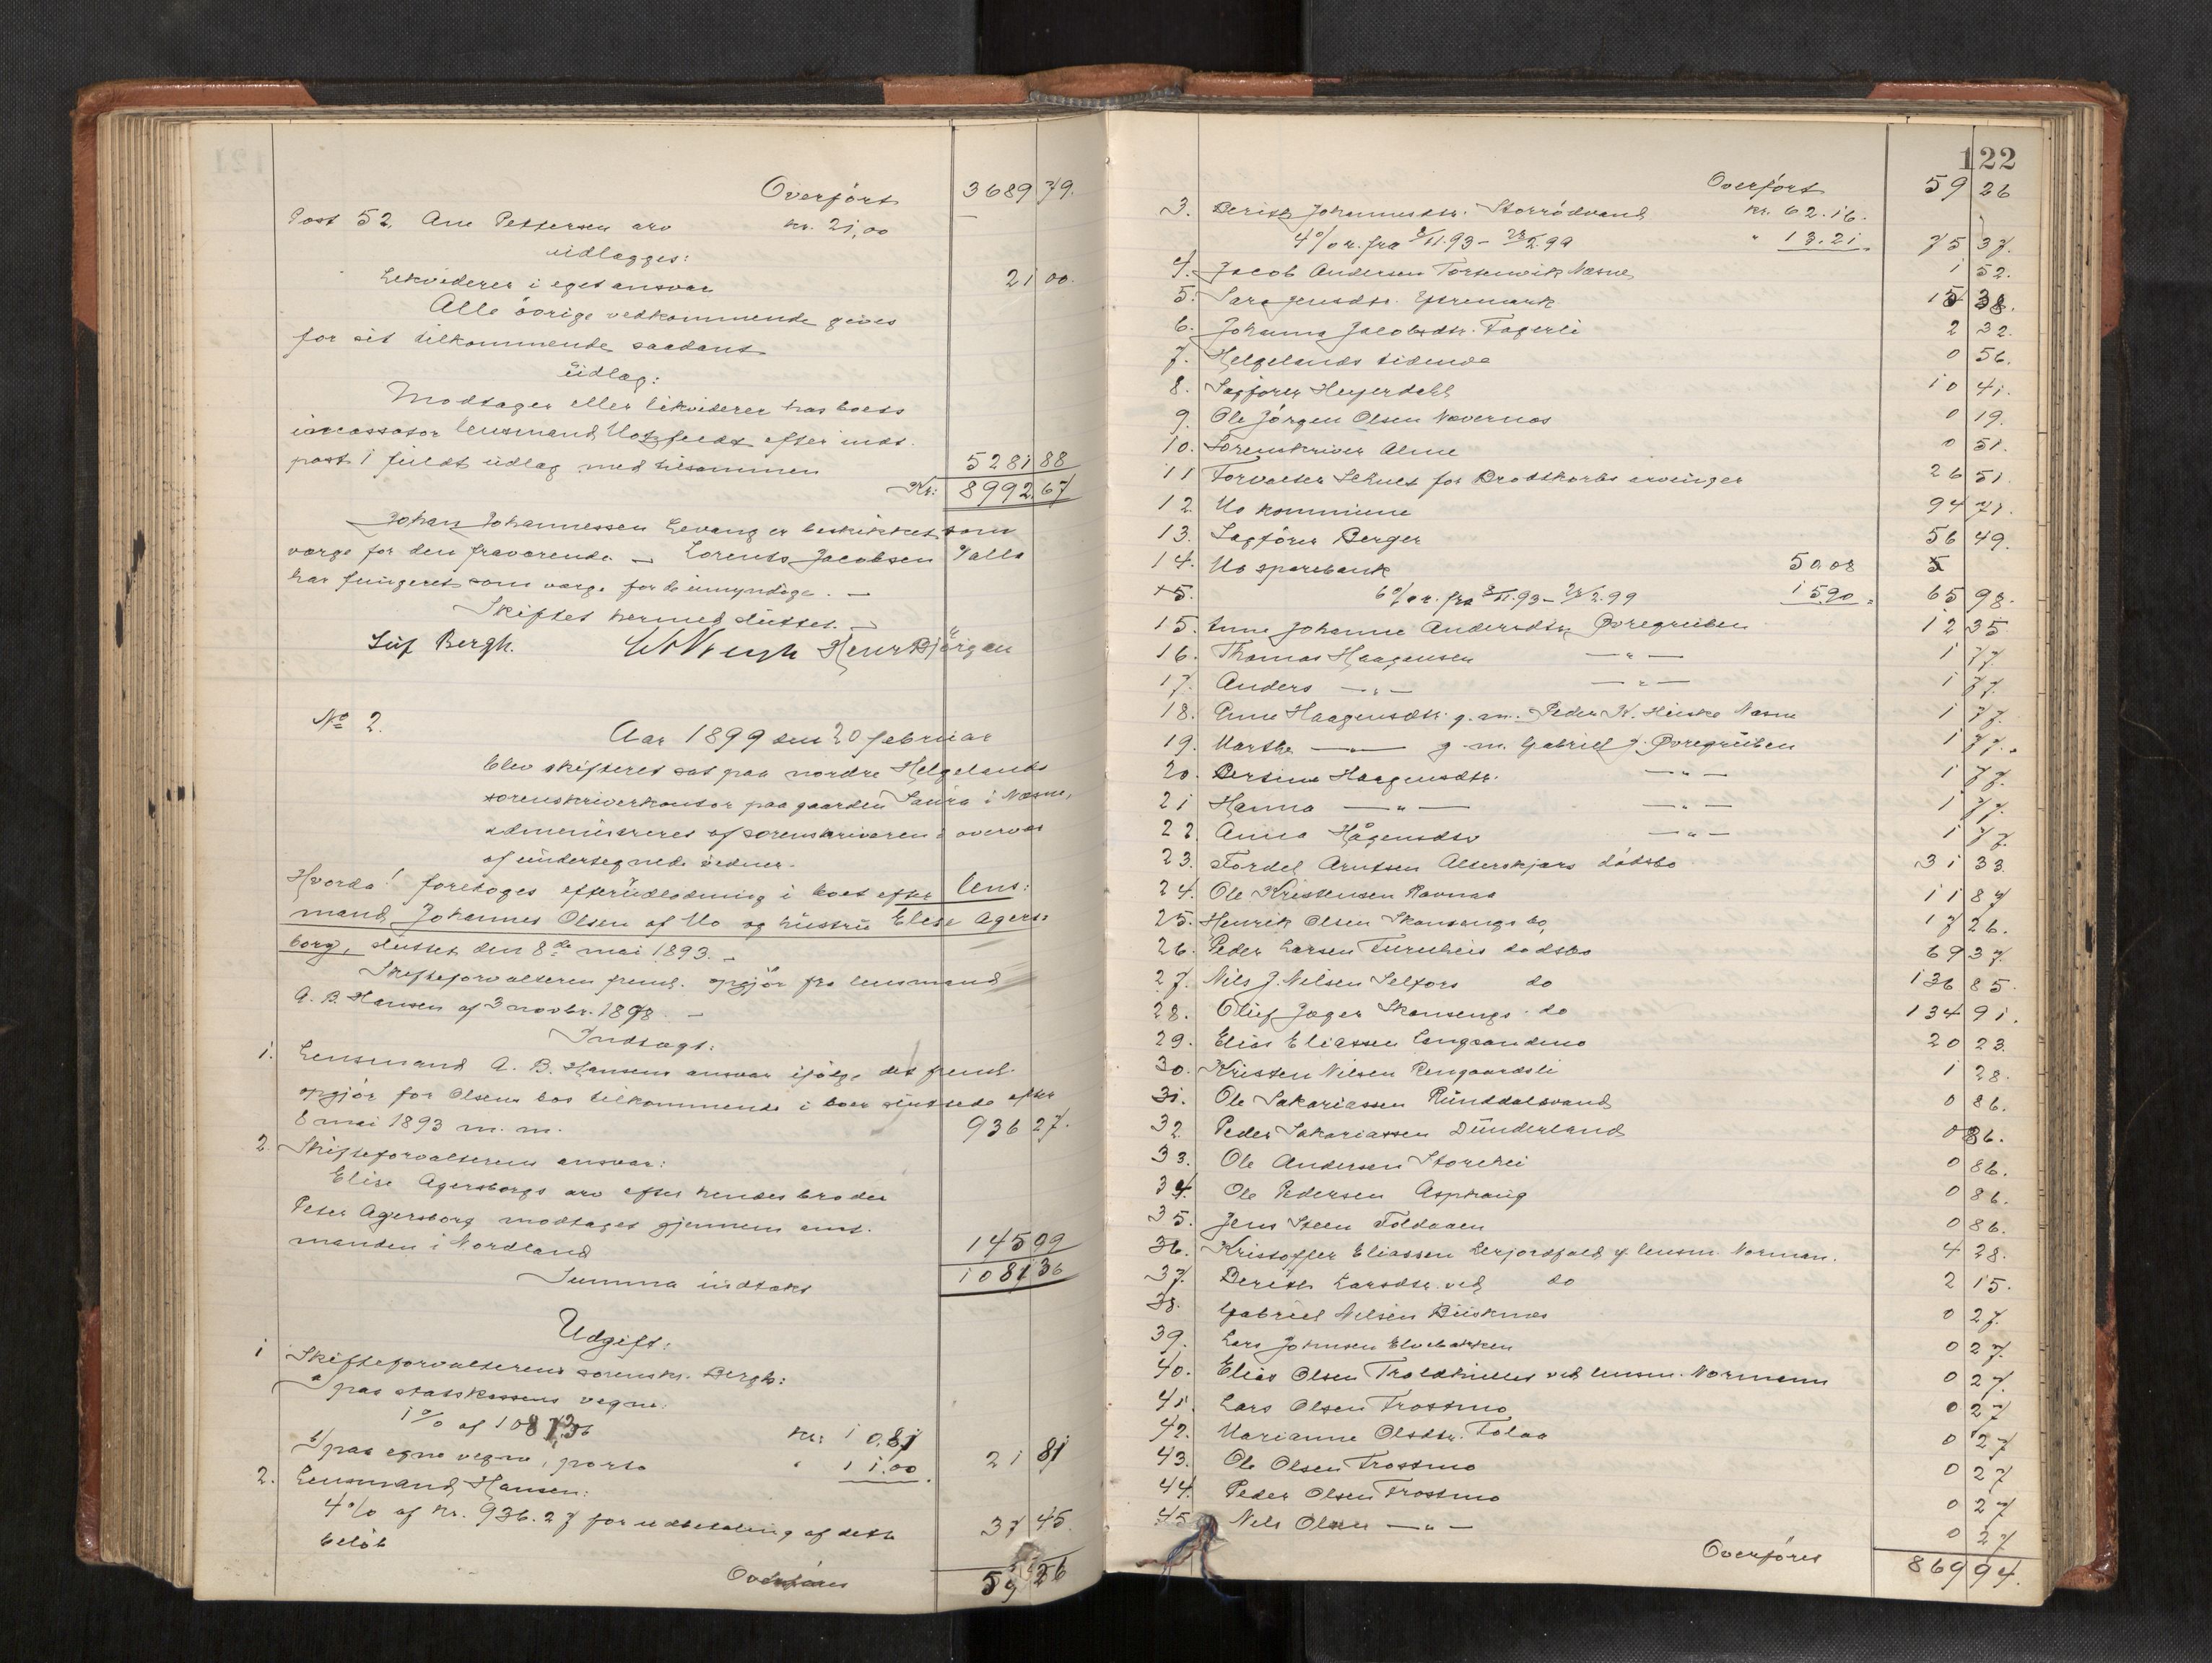 Overført 3689 79.
Post 52. Ane Pettersen arv kr. 21,00
udlægges:
Likviderer i eget ansvar 21 00.
Alle øvrige vedkommende gives
for sit tilkommende saadant
Udlæg:
Modtager eller likviderer hos boets
incassator lensmand Motzfeldt efter indt.
post 1 fuldt udlæg med tilsammen 5281 88
Kr: 8992.67
Johan Johannessen Levang er beskikket som
værge for den fraværende. Lorents Jacobsen Valla
har fungeret som værge for de umyndige. —
Skiftet hermed sluttet. —
Bergh.
No 2.
Aar 1899 den 20 februar
blev skifteret sat paa nordre Helgelands
sorenskriverkontor paa gaarden Saura i Næsne,
administreret af sorenskriveren i overvær
af undertegnede vidner.
Hvorda! foretoges efterudlodning i boet efter lens=
mand Johannes Olsen af Mo og hustru Elise Agers=
borg, sluttet den 8de mai 1893. —
Skifteforvalteren freml. opgjør fra lensmand
A. B. Hansen af 3 novbr. 1898. —
Indtægt:
1. Lensmand A. B. Hansens ansvar ifølge det freml.
opgjør for Olsens bos tilkommende i boer sluttede efter
8 mai 1893 m. m. 936 27.
2. Skifteforvalterens ansvar:
Elise Agersborgs arv efter hendes broder
Peter Agersborg modtaget gjennem amt-
manden i Nordland 145 09
Summa indtækt 1081 36
Udgift:
1 Skifteforvalteren sorenskr. Bergh:
a/ paa statskassens vegne:
1% af 1081,36 kr: 10.81
b/ paa egne vegne, porto " 11.00. 21 81
2. Lensmand Hansen:
4% af kr. 936.27 for udbetaling af dette
beløb 37 45.
Overføres 59 26
122
Overført 59 26
3. Berith Johannesdtr. Storrødvand kr. 62.16.
4% r. fra 8/11.93 – 28/2.99 " 13.21. 75 37.
4. Jacob Andersen Torsenvik Næsne 1 52.
5. Sara Jensdtr. Ytremark 15 38.
6. Johanna Jacobsdtr. Fagerli 2 32.
7. Helgelands tidende 0 56.
8. Sagfører Heyerdahl 10 41.
9. Ole Jørgen Olsen Nævernes 0 19.
10. Sorenskriver Alme 0 51.
11 Forvalter Schult for Brodtkorbs arvinger 26 51.
12. Mo kommune 94 21.
13. Sagfører Berger 56 49.
14. Mo sparebank 50.08
6% r. fra 8/11.93 – 28/2.99 15.90 = 65 98.
15. Anne Johanne Andersdtr. Øvregruben 12 35
16. Thomas Haagensen —"— 1 77.
17. Anders —"— —"— 1 77.
18. Anne Haagensdtr. g. m. Peder K. Næsne 1 77
19. Marthe —"— g. m. Gabriel J. Øvregruben 1 77.
20. Bertine Haagensdtr. —"— 1 77.
21 Hanna —"— —"— 1 77.
22. Anna Hågensdtr —"— 1 77.
23. Fordel Arntsen Alterskjærs dødsbo 31 33.
24. Ole Kristensen Ravnaa 11 87
25. Henrik Olsen Skonsengs bo 17 26.
26. Peder Larsen Furuheis dødsbo 69 37.
27. Nils J. Nilsen Selfors do 136 85.
28. Oluf Jæger Skonsengs do 134 91.
29. Elias Eliassen Langsandmo 20 23.
30. Kristen Nilsen Rengaardsli 1 28.
31. Ole Sakariassen Randalsvand 0 86.
32 Peder Sakariassen Dunderland 0 86.
33. Ole Andersen Storhei 0 86.
34. Ole Pedersen Asphaug 0 86.
35. Jens Steen Toldaaen 0 86.
36. Kristoffer Eliassen Lerjordfald v lensm. Norman. 4 28.
37. Berith Larsdtr. ved do 2 15.
38. Gabriel Nilsen Buskmo 0 27.
39. Lars Johnsen Elvebakken 0 27.
40. Elias Olsen Troldhullet ved lensm. Normann 0 27.
41. Lars Olsen Trostmo 0 27
42. Marianne Olsdtr. Tolaa 0 27
43. Ole Olsen Trostmo 0 27
44. Peder Olsen Trostmo 0 27
45. Nils Olsen —"— 0 27
Overføres 869 94.